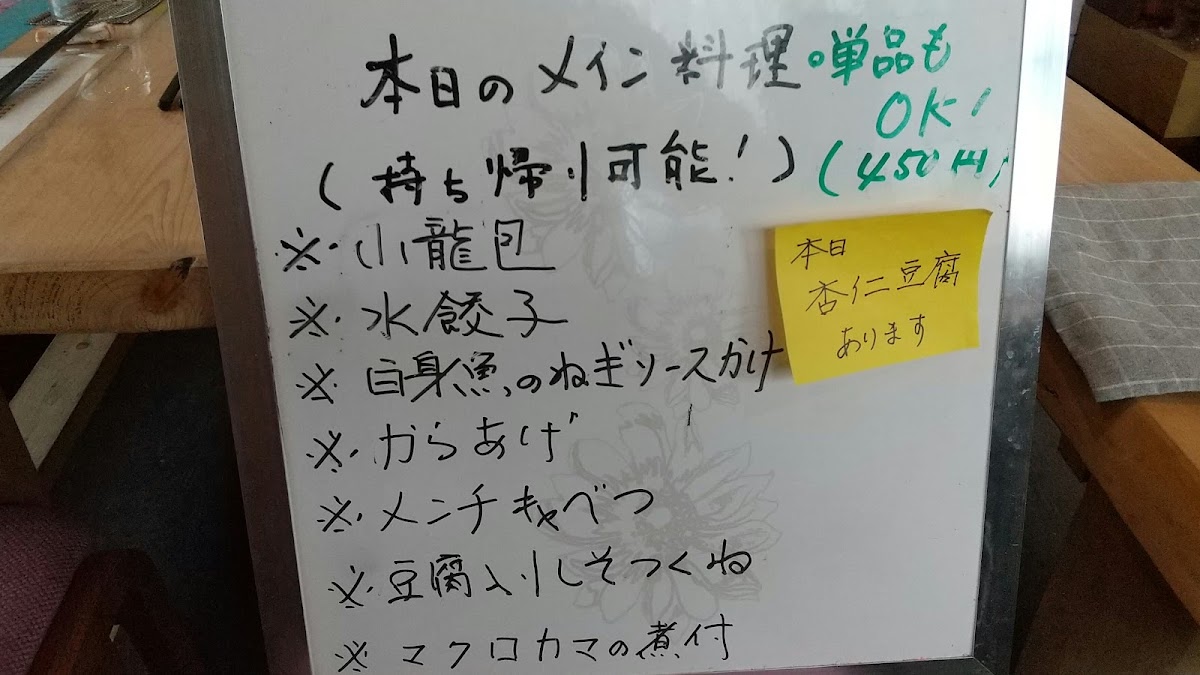 本日のメイン料理 単品も
OK!
(持ち帰り可能!) (450円)
※・小龍包
※・水餃子
※・白身魚のねぎソースかけ
※・からあげ
※・メンチキャベつ
※・豆腐入りしそつくね
※・マクロカマの煮付
本日
杏仁豆腐
あります